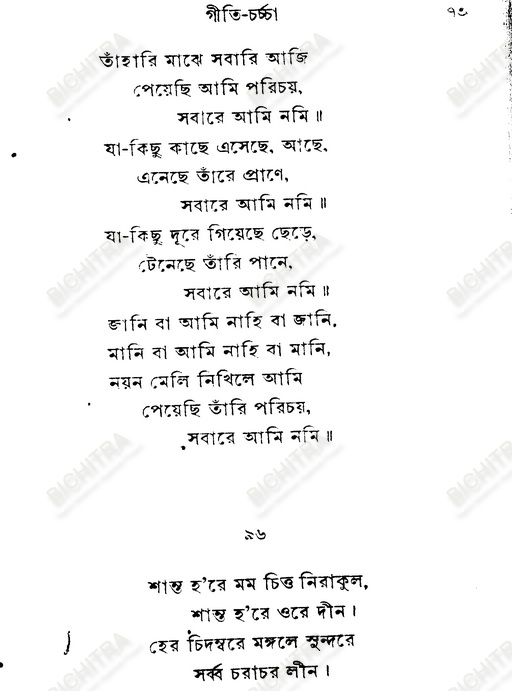 গীতি-চর্চ্চা ৭৫
তাঁহারি মাঝে সবারি আজি
পেয়েছি আমি পরিচয়,
সবারে আমি নমি॥
যা-কিছু কাছে এসেছে, আছে,
এনেছে তাঁরে প্রাণে,
সবারে আমি নমি॥
যা-কিছু দূরে গিয়েছে ছেড়ে,
টেনেছে তাঁরি পানে,
সবারে আমি নমি॥
জানি বা আমি নাহি বা জানি,
মানি বা আমি নাহি বা মানি,
নয়ন মেলি নিখিলে আমি
পেয়েছি তাঁরি পরিচয়,
সবারে আমি নমি॥
৯৬
শান্ত হ'রে মম চিত্ত নিরাকুল,
শান্ত হ'রে ওরে দীন।
হের চিদম্বরে মঙ্গলে সুন্দরে
সর্ব্ব চরাচর লীন।
BICHITRA